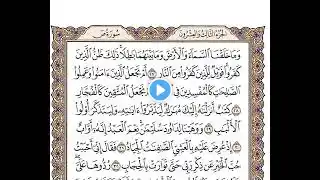 سُورَةُ ص الجزء الثالث والعشرون
وَمَا خَلَقْنَا ٱلسَّمَآءَ وَٱلْأَرْضَ وَمَا بَيْنَهُمَا بَٰطِلًا ذَٰلِكَ ظَنُّ ٱلَّذِينَ
كَفَرُوا۟ فَوَيْلٌ لِّلَّذِينَ كَفَرُوا۟ مِنَ ٱلنَّارِ ٢٧ أَمْ نَجْعَلُ ٱلَّذِينَ ءَامَنُوا۟ وَعَمِلُوا۟
ٱلصَّٰلِحَٰتِ كَٱلْمُفْسِدِينَ فِى نَجْعَلُ ٱلْمُتَّقِينَ كَٱلْفُجَّارِ
٢٨ كِتَٰبٌ أَنزَلْنَٰهُ إِلَيْكَ مُبَٰرَكٌ لِّيَدَّبَّرُوٓا۟ ءَايَٰتِهِۦ وَلِيَتَذَكَّرَ أُو۟لُوا۟
ٱلْأَلْبَٰبِ ٢٩ وَوَهَبْنَا لِدَاوُۥدَ سُلَيْمَٰنَ نِعْمَ ٱلْعَبْدُ إِنَّهُۥٓ أَوَّابٌ
٣٠ إِذْ عُرِضَ عَلَيْهِ بِٱلْعَشِىِّ ٱلصَّٰفِنَٰتُ ٱلْجِيَادُ ٣١ فَقَالَ إِنِّىٓ أَحْبَبْتُ
حُبَّ ٱلْخَيْرِ عَن ذِكْرِ رَبِّى حَتَّىٰ تَوَارَتْ بِٱلْحِجَابِ ٣٢ رُدُّوهَا عَلَىَّ